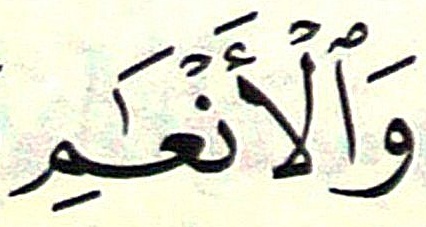 وَٱلْأَنْعَـٰمِ